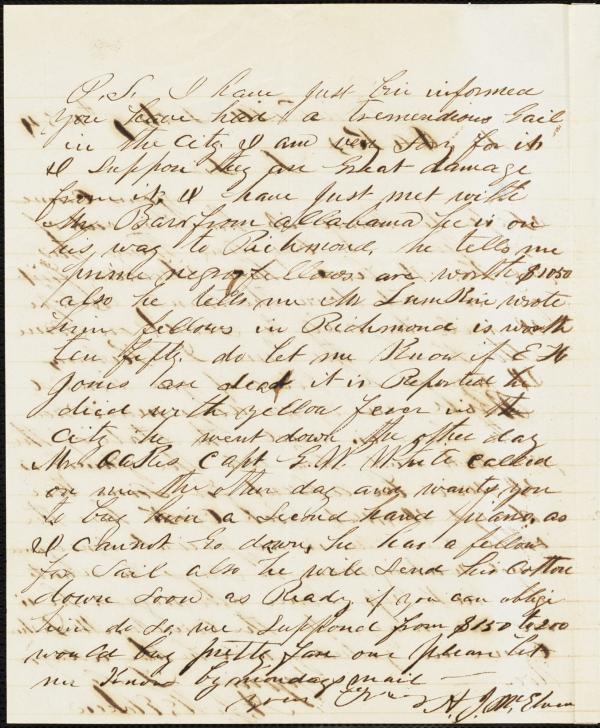 P.S. I have just bin informed
you have had a tremendious Gail
in the City I am very sory for it
I suppose they are Great damage
from it. I have just met with
Mr Barr from allabama he is on
his way to Richmond, he tells me
prime negro fellows are worth $1050
also he tells me Mr Lumkin wrote
him fellows in Richmond is worth
ten fifty do let me Know if E H
Jones are dead it is Reported he
died with yellow fever in the
City he went down the other day
Mr Capt G. W. White called
on me the other day and wants you
to buy him a second hand piano, as
I cannot Go down, he has a fellow
for Sail also he will send his cotton
down soon as Ready if you can oblige
him do so, we supposd from $150 to 200
would buy pretty fare one please let
me Know by mondays mail —
your
A. J. McElveen